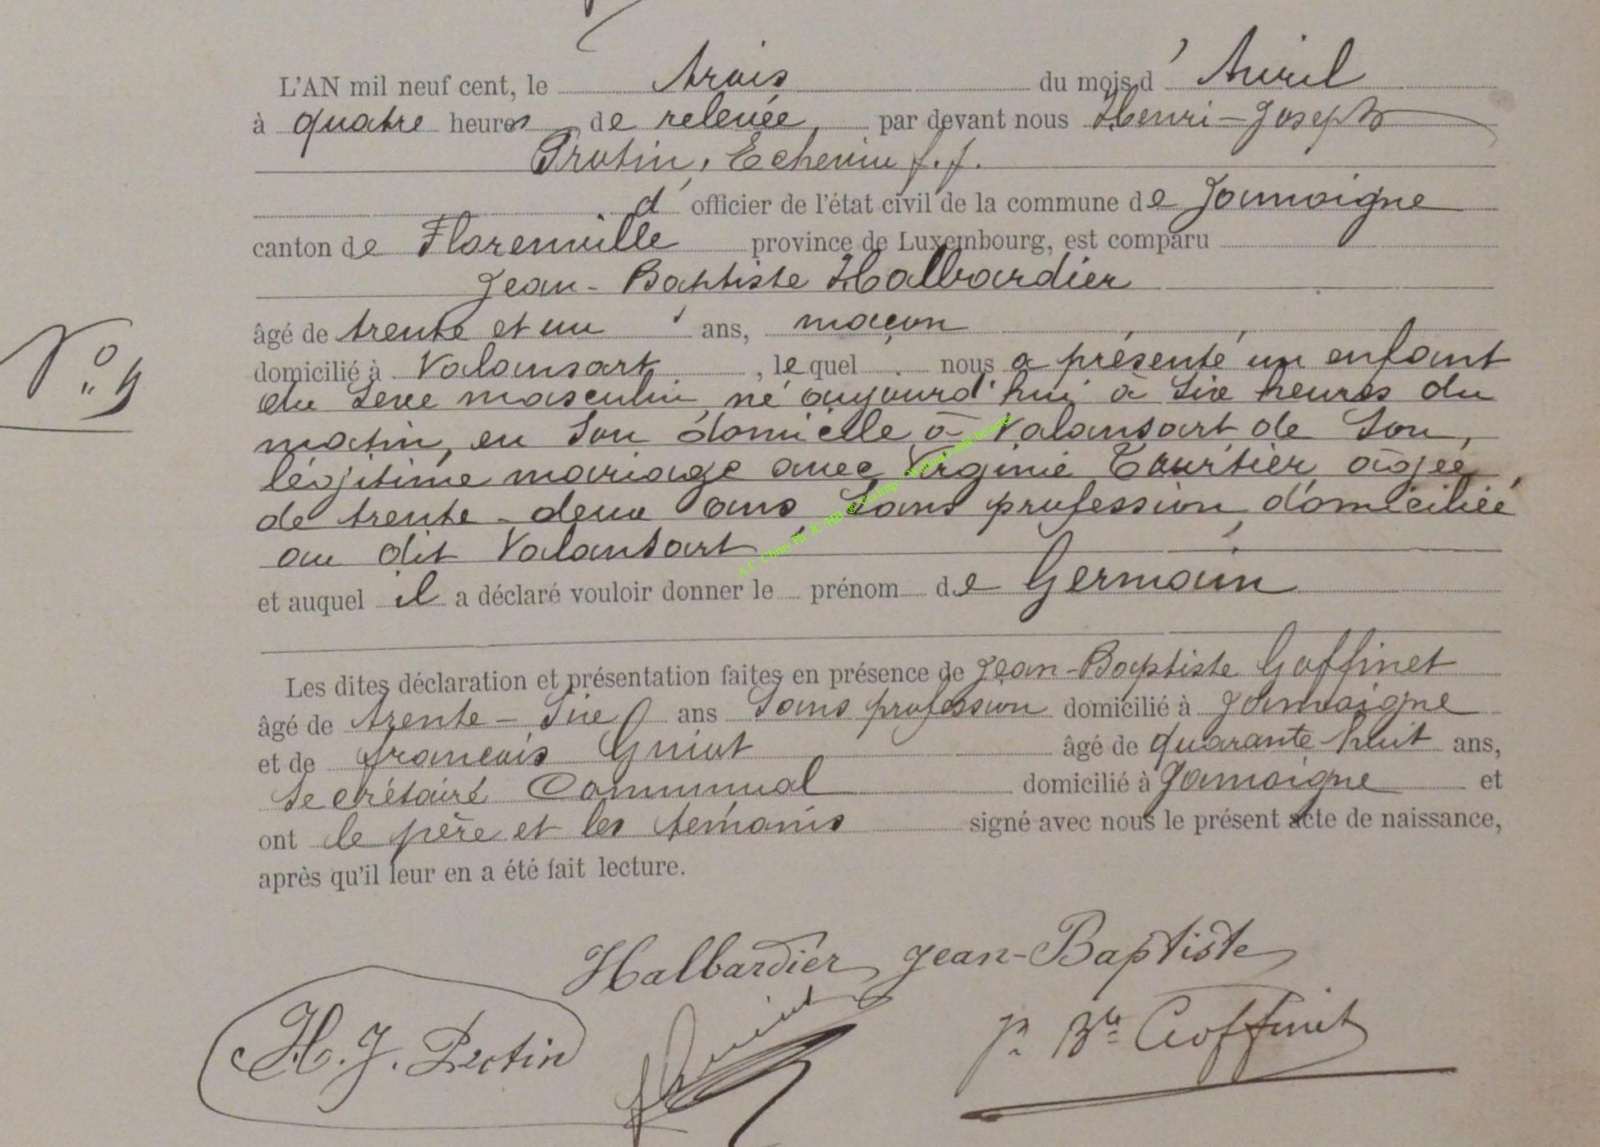 L'AN mil neuf cent, le trois du mois d' Avril
à quatre heures de relevée, par devant nous Henri-Joseph
Protin, Echevin f.f.
d' officier de l'état civil de la commune de Jamoigne
canton de Florenville province de Luxembourg, est comparu
Jean-Baptiste Halbardier
âgé de trente et un ans, maçon
N° 4
domicilié à Valansart, lequel nous a présenté un enfant
du sexe masculin, né aujourd'hui à six heures du
matin, en son domicile à Valansart de son
légitime mariage avec Virginie âgée
de trente-deux ans sans profession, domiciliée
au dit Valansart
et auquel il a déclaré vouloir donner le prénom de Germain
Les dites déclaration et présentation faites en présence de Jean-Baptiste Goffinet
âgé de trente-six ans sans profession domicilié à Jamoigne
et de François Guiot âgé de quarante huit ans,
secrétaire Communal domicilié à Jamoigne et
ont le père et les témoins signé avec nous le présent acte de naissance,
après qu'il leur en a été fait lecture.
Halbardier Jean-Baptiste
H. J. Protin
Jn Bte Goffinet